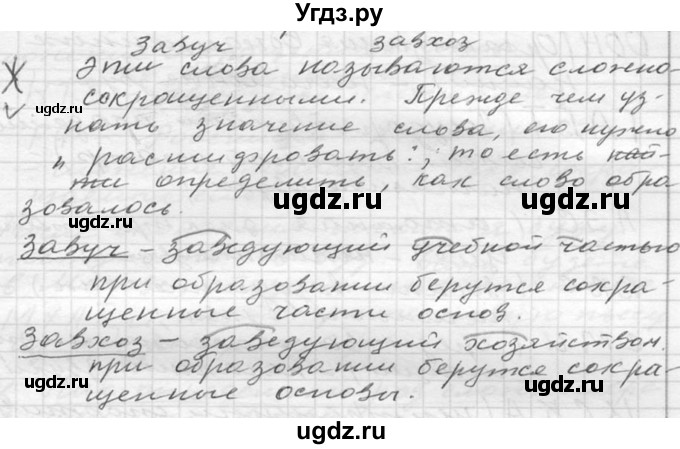 Угдз.ру
Завуч завхоз
Эти слова называются сложно-
сокращенными. Прежде чем уз-
нать значение слова, его нужно
„расшифровать", то есть най-
ти определить, как слово обра
зовалось.
Завуч – заведующий учебной частью
при образовании берутся сокра-
щенные части основ.
Завхоз – заведующий хозяйством.
при образовании берутся сокра-
щенные основы.
ugdz.ru
ugdz.ru
ugdz.ru
ugdz.ru
ugdz.ru
ugdz.ru
ugdz.ru
ugdz.ru
ugdz.ru
ugdz.ru